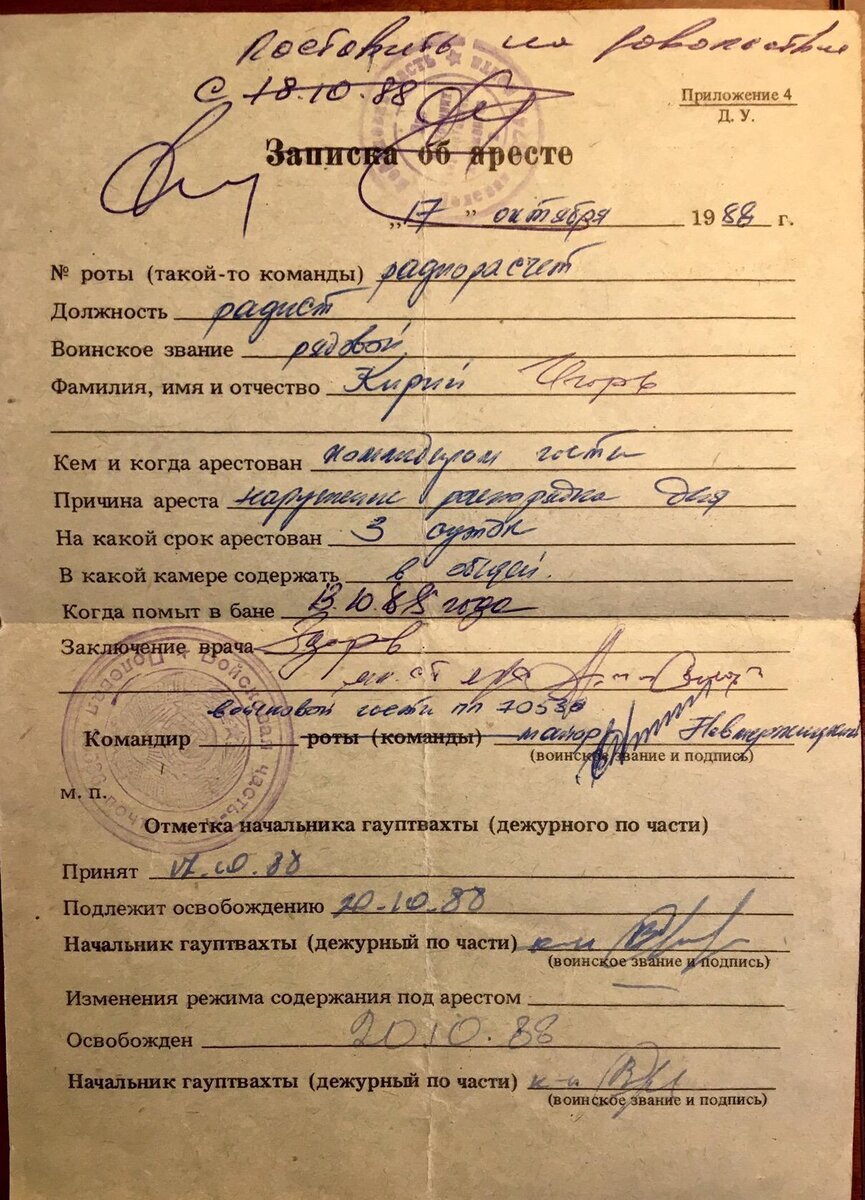 Поставить на довольствие
с 18.10.88
Приложение 4
Д. У.
Записка об аресте
„17” октября 1988 г.
№ роты (такой-то команды) радиорасчет
Должность радист
Воинское звание рядовой
Фамилия, имя и отчество Кирий Игорь
Кем и когда арестован командиром части
Причина ареста нарушение распорядка дня
На какой срок арестован 3 суток
В какой камере содержать в общей.
Когда помыт в бане 13.10.88 года
Заключение врача Здоров
войсковой части пп 70538
Командир роты (команды) майор
(воинское звание и подпись)
м. п.
Войсковая часть
Отметка начальника гауптвахты (дежурного по части)
Принят 17.10.88
Подлежит освобождению 20.10.88
Начальник гауптвахты (дежурный по части) к-н
(воинское звание и подпись)
Изменения режима содержания под арестом
Освобожден 20.10.88
Начальник гауптвахты (дежурный по части) к-н
(воинское звание и подпись)